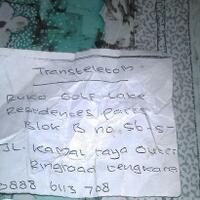 Transteletom
Ruko Golf Lake
Residences Paris
Blok B no. 56-5-
JL. Kamal raya Outer
Ringroad Cengkaren
0888 6113 708